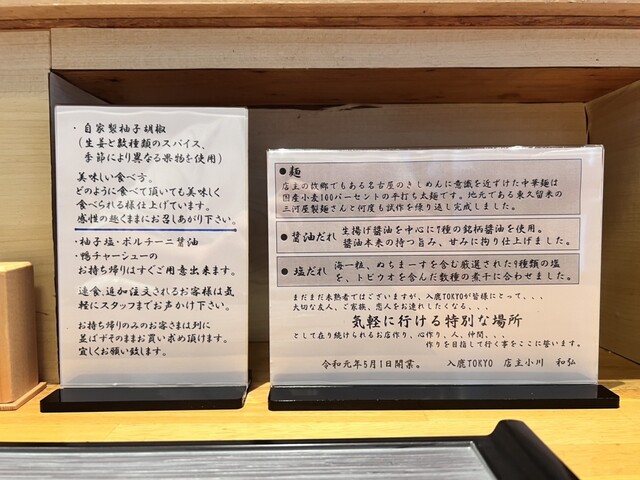 ・自家製柚子胡椒
（生姜と数種類のスパイス、
季節により異なる果物を使用）
美味しい食べ方。
どのように食べて頂いても美味しく
食べられる様仕上げています。
感性の趣くままにお召しあがり下さい。
・柚子塩・ポルチーニ醤油
・鴨チャーシューの
お持ち帰りはすぐご用意出来ます。
連食、追加注文されるお客様は気
軽にスタッフまでお声かけ下さい。
お持ち帰りのみのお客さまは列に
並ばずそのままお買い求め頂けます。
宜しくお願い致します。
●麺
店主の故郷でもある名古屋のきしめんに意識を近ずけた中華麺は
国産小麦100パーセントの平打ち太麺です。地元である東久留米の
三河屋製麺さんと何度も試作を繰り返し完成しました。
●醤油だれ 生揚げ醤油を中心に7種の銘柄醤油を使用。
醤油本来の持つ旨み、甘みに拘り仕上げました。
●塩だれ 海一粒、ぬちまーすを含む厳選された9種類の塩
を、トビウオを含んだ数種の煮干に合わせました。
まだまだ未熟者ではございますが、入鹿TOKYOが皆様にとって、、、
大切な友人、ご家族、恋人をお連れしたくなる、、、
気軽に行ける特別な場所
として在り続けられるお店作り、心作り、人、仲間、、、
作りを目指して行く事をここに誓います。
令和元年5月1日開業。 入鹿TOKYO 店主小川 和弘